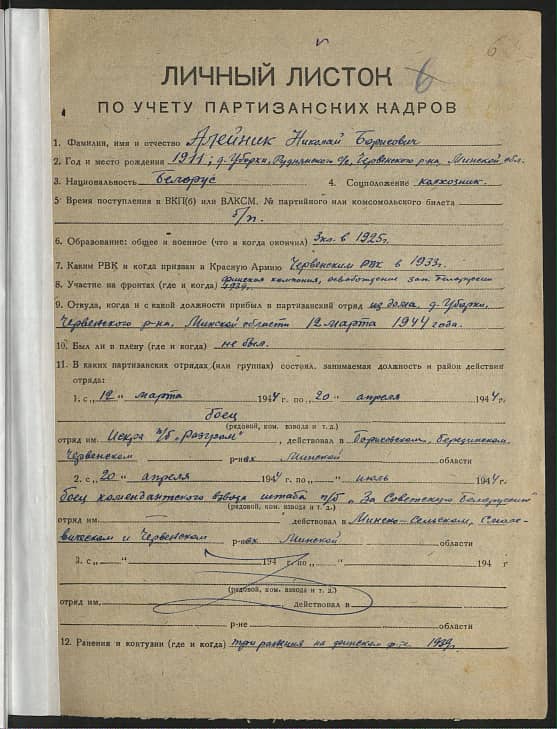 6
ЛИЧНЫЙ ЛИСТОК 6
ПО УЧЕТУ ПАРТИЗАНСКИХ КАДРОВ
1. Фамилия, имя и отчество Алейник Николай Борисович
2. Год и место рождения 1911, д. Уборки, Руднянского с/с, Червенского р-на, Минской обл.
3. Национальность Белорус 4. Соцположение колхозник.
5. Время поступления в ВКП(б) или ВЛКСМ. № партийного или комсомольского билета
б/п.
6. Образование: общее и военное (что и когда окончил) 3 кл. в 1925г.
7. Каким РВК и когда призван в Красную Армию Червенским РВК в 1933г.
8. Участие на фронтах (где и когда) финская компания, освобождение зап. Белоруссии
1939г.
9. Откуда, когда и с какой должности прибыл в партизанский отряд из дома д. Уборки,
Червенского р-на, Минской области 12 марта 1944 года.
10. Был ли в плену (где и когда) не был.
11. В каких партизанских отрядах (или группах) состоял, занимаемая должность и район действия
отряда:
1. с „12“ марта 1944 г. по „20“ апреля 1944 г.
боец
(рядовой, ком. взвода и т. д.)
отряд им. Искра п/б „Разгром“, действовал в Борисовском, Березинском,
Червенском р-нах Минской области
2. с „20“ апреля 1944 г. по „ “ июль 1944 г.
боец комендантского взвода штаба п/б „За Советскую Белоруссию“
(рядовой, ком. взвода и т. д.)
отряд им. действовал в Минско-Сельском, Смоле-
вичском и Червенском р-нах Минской области
3. с „ “ 194 г. по „ “ 194 г
(рядовой, ком. взвода и т. д.)
отряд им. действовал в
р-не области
12. Ранения и контузии (где и когда) три ранения на финском ф-те. 1939г.